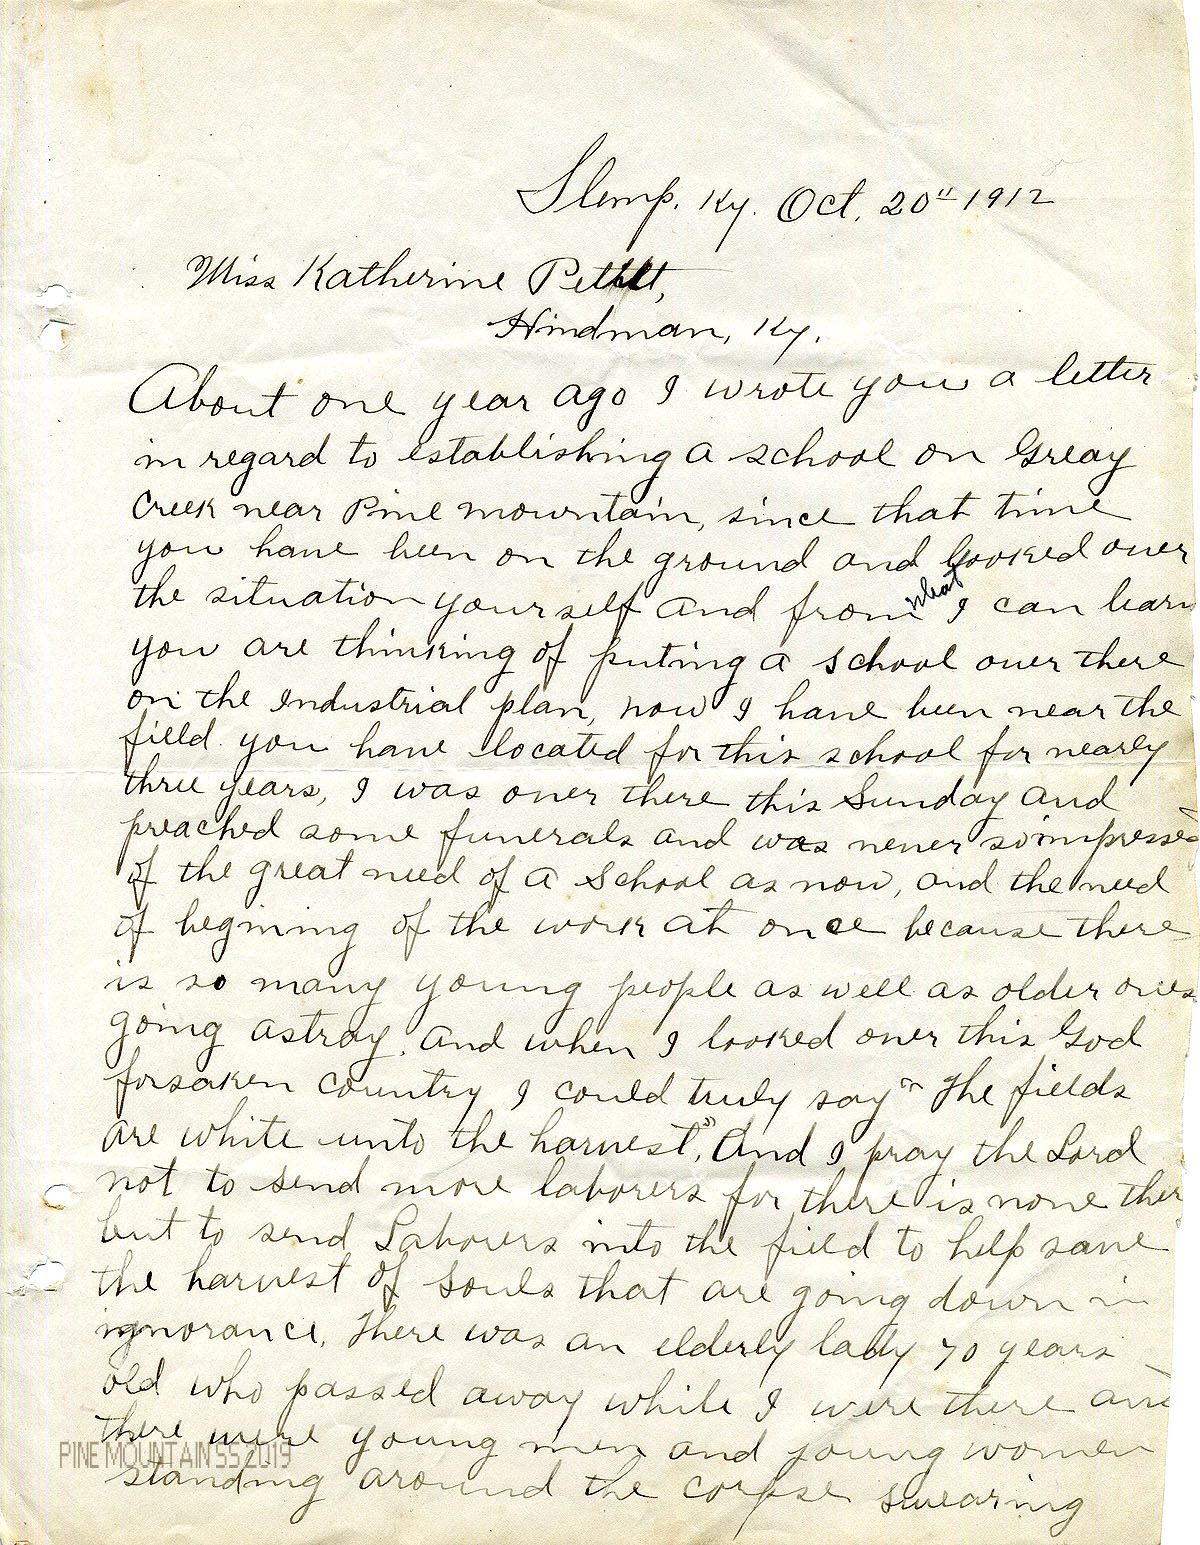 Slemp, Ky. Oct. 20" 1912
Miss Katherine Pettit,
Hindman, Ky.
About one year ago I wrote you a letter
in regard to establishing a school on Greay
Creek near Pine mountain, since that time
you have been on the ground and looked over
the situation yourself and from what I can learn
you are thinking of puting a school over there
on the Industrial plan, now I have been near the
field you have located for this school for nearly
three years, I was over there this Sunday and
preached some funerals and was never so impressed
of the great need of a School as now, and the need
of begining of the work at once because there
is so many young people as well as older ones
going astray, And when I looked over this God
forsaken country I could truly say "The fields
are white unto the harvest", And I pray the Lord
not to send more laborers for there is none ther
but to send Laborers into the field to help save
the harvest of souls that are going down in
ignorance. There was an elderly lady 70 years
old who passed away while I were there and
there were young men and young women
standing around the corpse swearing
PINE MOUNTAIN SS 2019